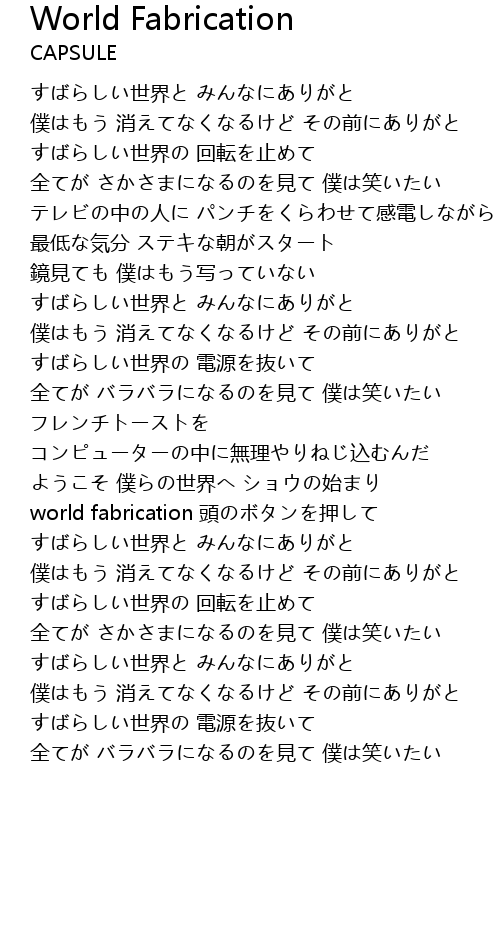 World Fabrication
CAPSULE
すばらしい世界と みんなにありがと
僕はもう 消えてなくなるけど その前にありがと
すばらしい世界の 回転を止めて
全てが さかさまになるのを見て 僕は笑いたい
テレビの中の人に パンチをくらわせて感電しながら
最低な気分 ステキな朝がスタート
鏡見ても 僕はもう写っていない
すばらしい世界と みんなにありがと
僕はもう 消えてなくなるけど その前にありがと
すばらしい世界の 電源を抜いて
全てが バラバラになるのを見て 僕は笑いたい
フレンチトーストを
コンピューターの中に無理やりねじ込むんだ
ようこそ 僕らの世界へ ショウの始まり
world fabrication 頭のボタンを押して
すばらしい世界と みんなにありがと
僕はもう 消えてなくなるけど その前にありがと
すばらしい世界の 回転を止めて
全てが さかさまになるのを見て 僕は笑いたい
すばらしい世界と みんなにありがと
僕はもう 消えてなくなるけど その前にありがと
すばらしい世界の 電源を抜いて
全てが バラバラになるのを見て 僕は笑いたい